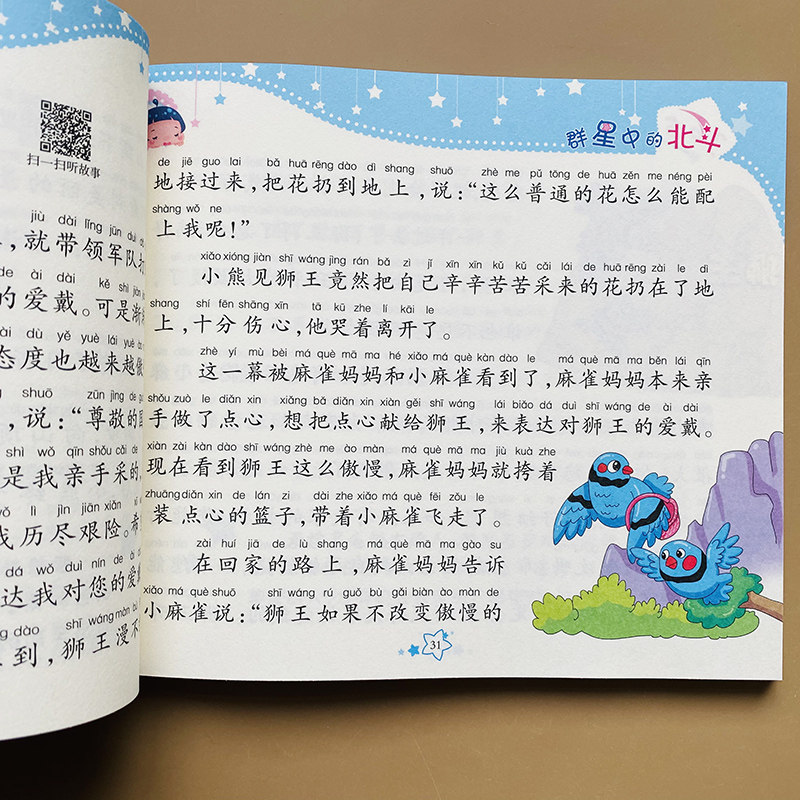 扫一扫听故事
jiù dài lǐng jūn duì
就带领军队
de ài dài kě shì jiàn
的爱戴。可是渐
tài dù yě yuè lái yuè
态度也越来越傲
shuō zūn jìng de
，说：“尊敬的国
shì wǒ qīn shǒu cǎi de
是我亲手采的
wǒ lì jìn jiān xiǎn
我历尽艰险。希
dá wǒ duì nín de ài
达我对您的爱
dào shī wáng màn bù
到，狮王漫不
群星中的北斗
de jiē guo lai bǎ huā rēng dào dì shang shuō zhè me pǔ tōng de huā zěn me néng pèi
地接过来，把花扔到地上，说：“这么普通的花怎么能配
shàng wǒ ne
上我呢！”
xiǎo xióng jiàn shī wáng jìng rán bǎ zì jǐ xīn xīn kǔ kǔ cǎi lái de huā rēng zài le dì
小熊见狮王竟然把自己辛辛苦苦采来的花扔在了地
shang shí fēn shāng xīn tā kū zhe lí kāi le
上，十分伤心，他哭着离开了。
zhè yí mù bèi má què mā ma hé xiǎo má què kàn dào le má què mā ma běn lái qīn
这一幕被麻雀妈妈和小麻雀看到了，麻雀妈妈本来亲
shǒu zuò le diǎn xin xiǎng bǎ diǎn xin xiàn gěi shī wáng lái biǎo dá duì shī wáng de ài dài
手做了点心，想把点心献给狮王，来表达对狮王的爱戴。
xiàn zài kàn dào shī wáng zhè me ào màn má què mā ma jiù kuà zhe
现在看到狮王这么傲慢，麻雀妈妈就挎着
zhuāng diǎn xin de lán zi dài zhe xiǎo má què fēi zǒu le
装点心的篮子，带着小麻雀飞走了。
zài huí jiā de lù shang má què mā ma gào su
在回家的路上，麻雀妈妈告诉
xiǎo má què shuō shī wáng rú guǒ bù gǎi biàn ào màn de
小麻雀说：“狮王如果不改变傲慢的
31